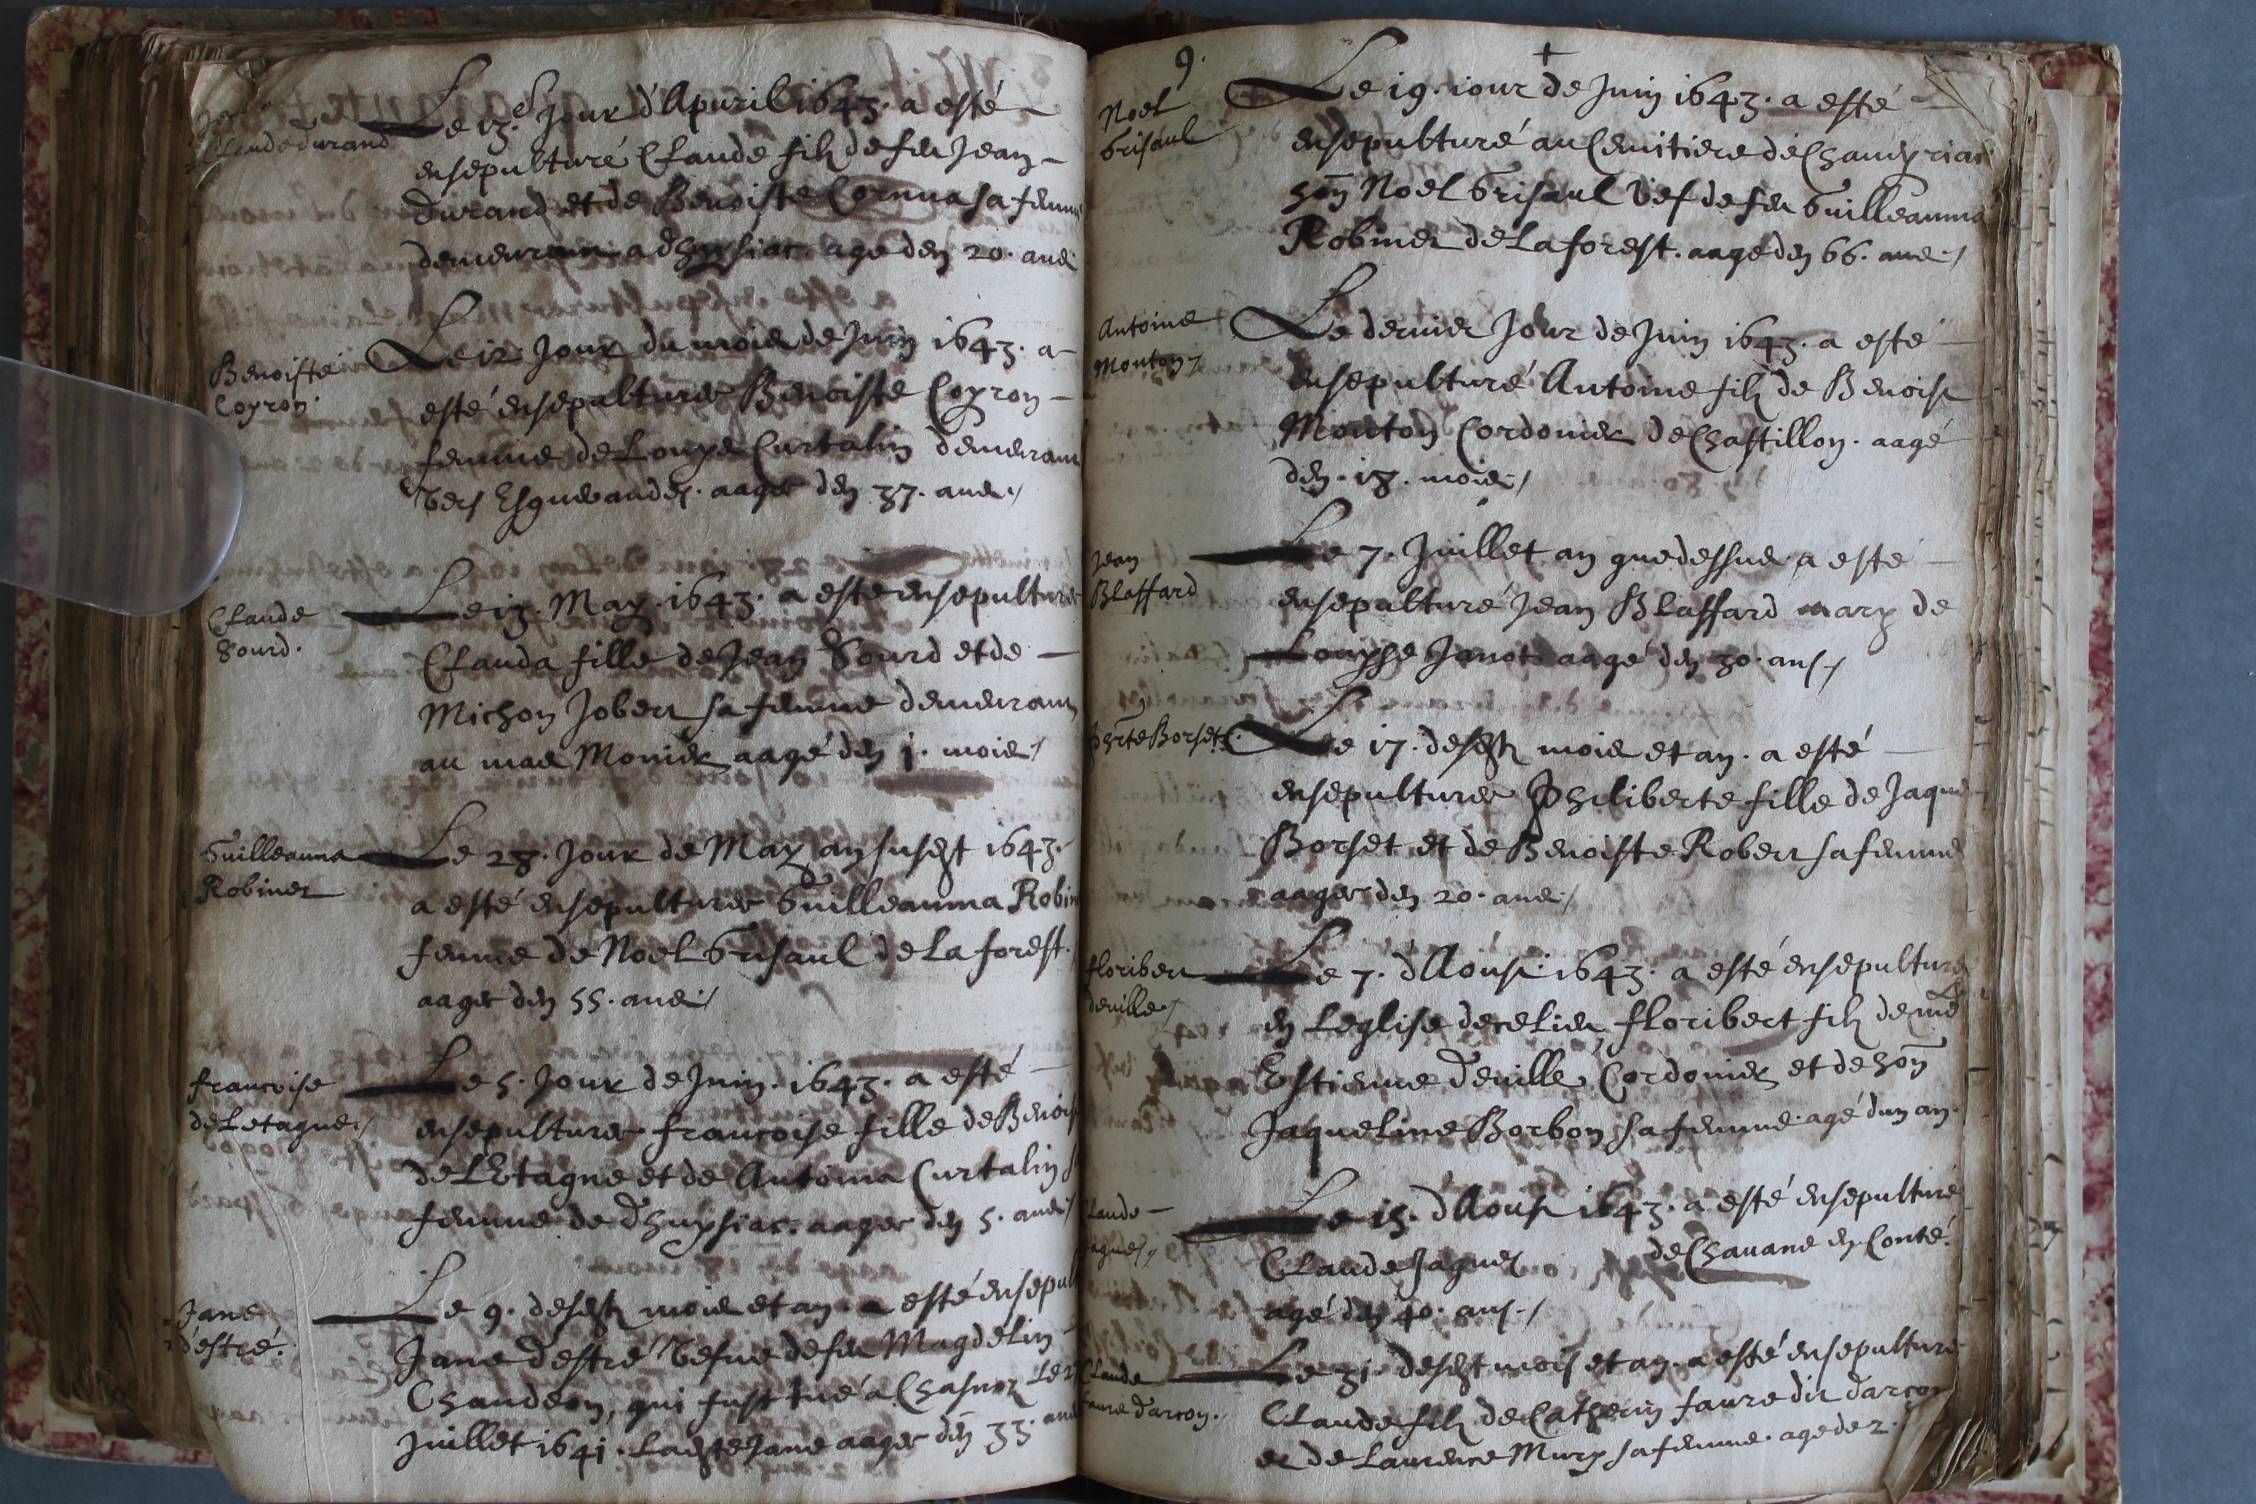 Claude durand
Le 13. Jour d'Apuril 1643. a esté
ensepulturé Claude filz de feu Jean
durand et de Benoiste Cornua sa femme
demeurant a dhuysiac. age den 20. ans
Benoiste
Coyron.
Le 12 Jour du mois de Juin 1643. a
esté ensepulturee Benoiste Coyron
femme de Louys Curtalin demeurant
vers aagee den 37. ans./
Claude
Sourd.
Le 13. May. 1643. a esté ensepulturee
Clauda fille de Jean Sourd et de
Michon Jobert sa femme demeurant
au mas Monier aagé den 1. mois/
Guilleauma
Robinet
Le 28. Jour de May an susdt 1643.
a esté ensepulturee Guilleauma Robinet
femme de Noel Grisaul de la forest.
aagee den 55. ans./
francoise
de Letagne./
Le 5. Jour de Juin. 1643. a esté
ensepulturee francoise fille de Benoist
de lEtagne et de Antoina Curtalin sa
femme de dhuysiac. aagee den 5. ans/
Jane
d'estré.
Le 9. desdtz mois et an. a esté ensepult
Jane destré Vefue de feu Magdelin
Chandeon, qui fust tué a Le 2
Juillet 1641. Ladte Jane aagee den 33. ans
9.
Noel
Grisaul
Le 19. iour de Juin 1643. a esté
ensepulturé au Cemitiere de Chaueyriac
hon Noel Grisaul Vef de feu Guilleauma
Robinet de La forest. aagé den 66. ans./
Antoine
Monton/
Le dernier Jour de Juin 1643. a esté
ensepulturé Antoine filz de Benoist
Monton Cordonier de Chastillon. aagé
den. 18. mois./
Jean
Blaffard
Le 7. Juillet an que dessus. a esté
ensepulturé Jean Blaffard mary de
Louysse Janot aagé den 30. ans./
phrte Borset.
Le 17. desdtz mois et an. a esté
ensepulturee Philiberte fille de Jaques
Borset et de Benoiste Robert sa femme
aagee den 20. ans./
floribert
deville./
Le 7. d'Aoust 1643. a esté ensepulturé
en Leglise de ce Lieu, floribert filz de me
Estienne deville, Cordonier et de hon
Jaqueline Borbon sa femme. agé dun an.
Claude
Jaques./
Le 15. d'Aoust 1643. a esté ensepulturé
Claude Jaques de Chauane en Conté.
agé den 40. ans./
Claude
faure darcon.
Le 31. desdt mois et an. a esté ensepulturé
Claude filz de Catherin faure dit darcon
et de Laurence Mury sa femme. age de 2.